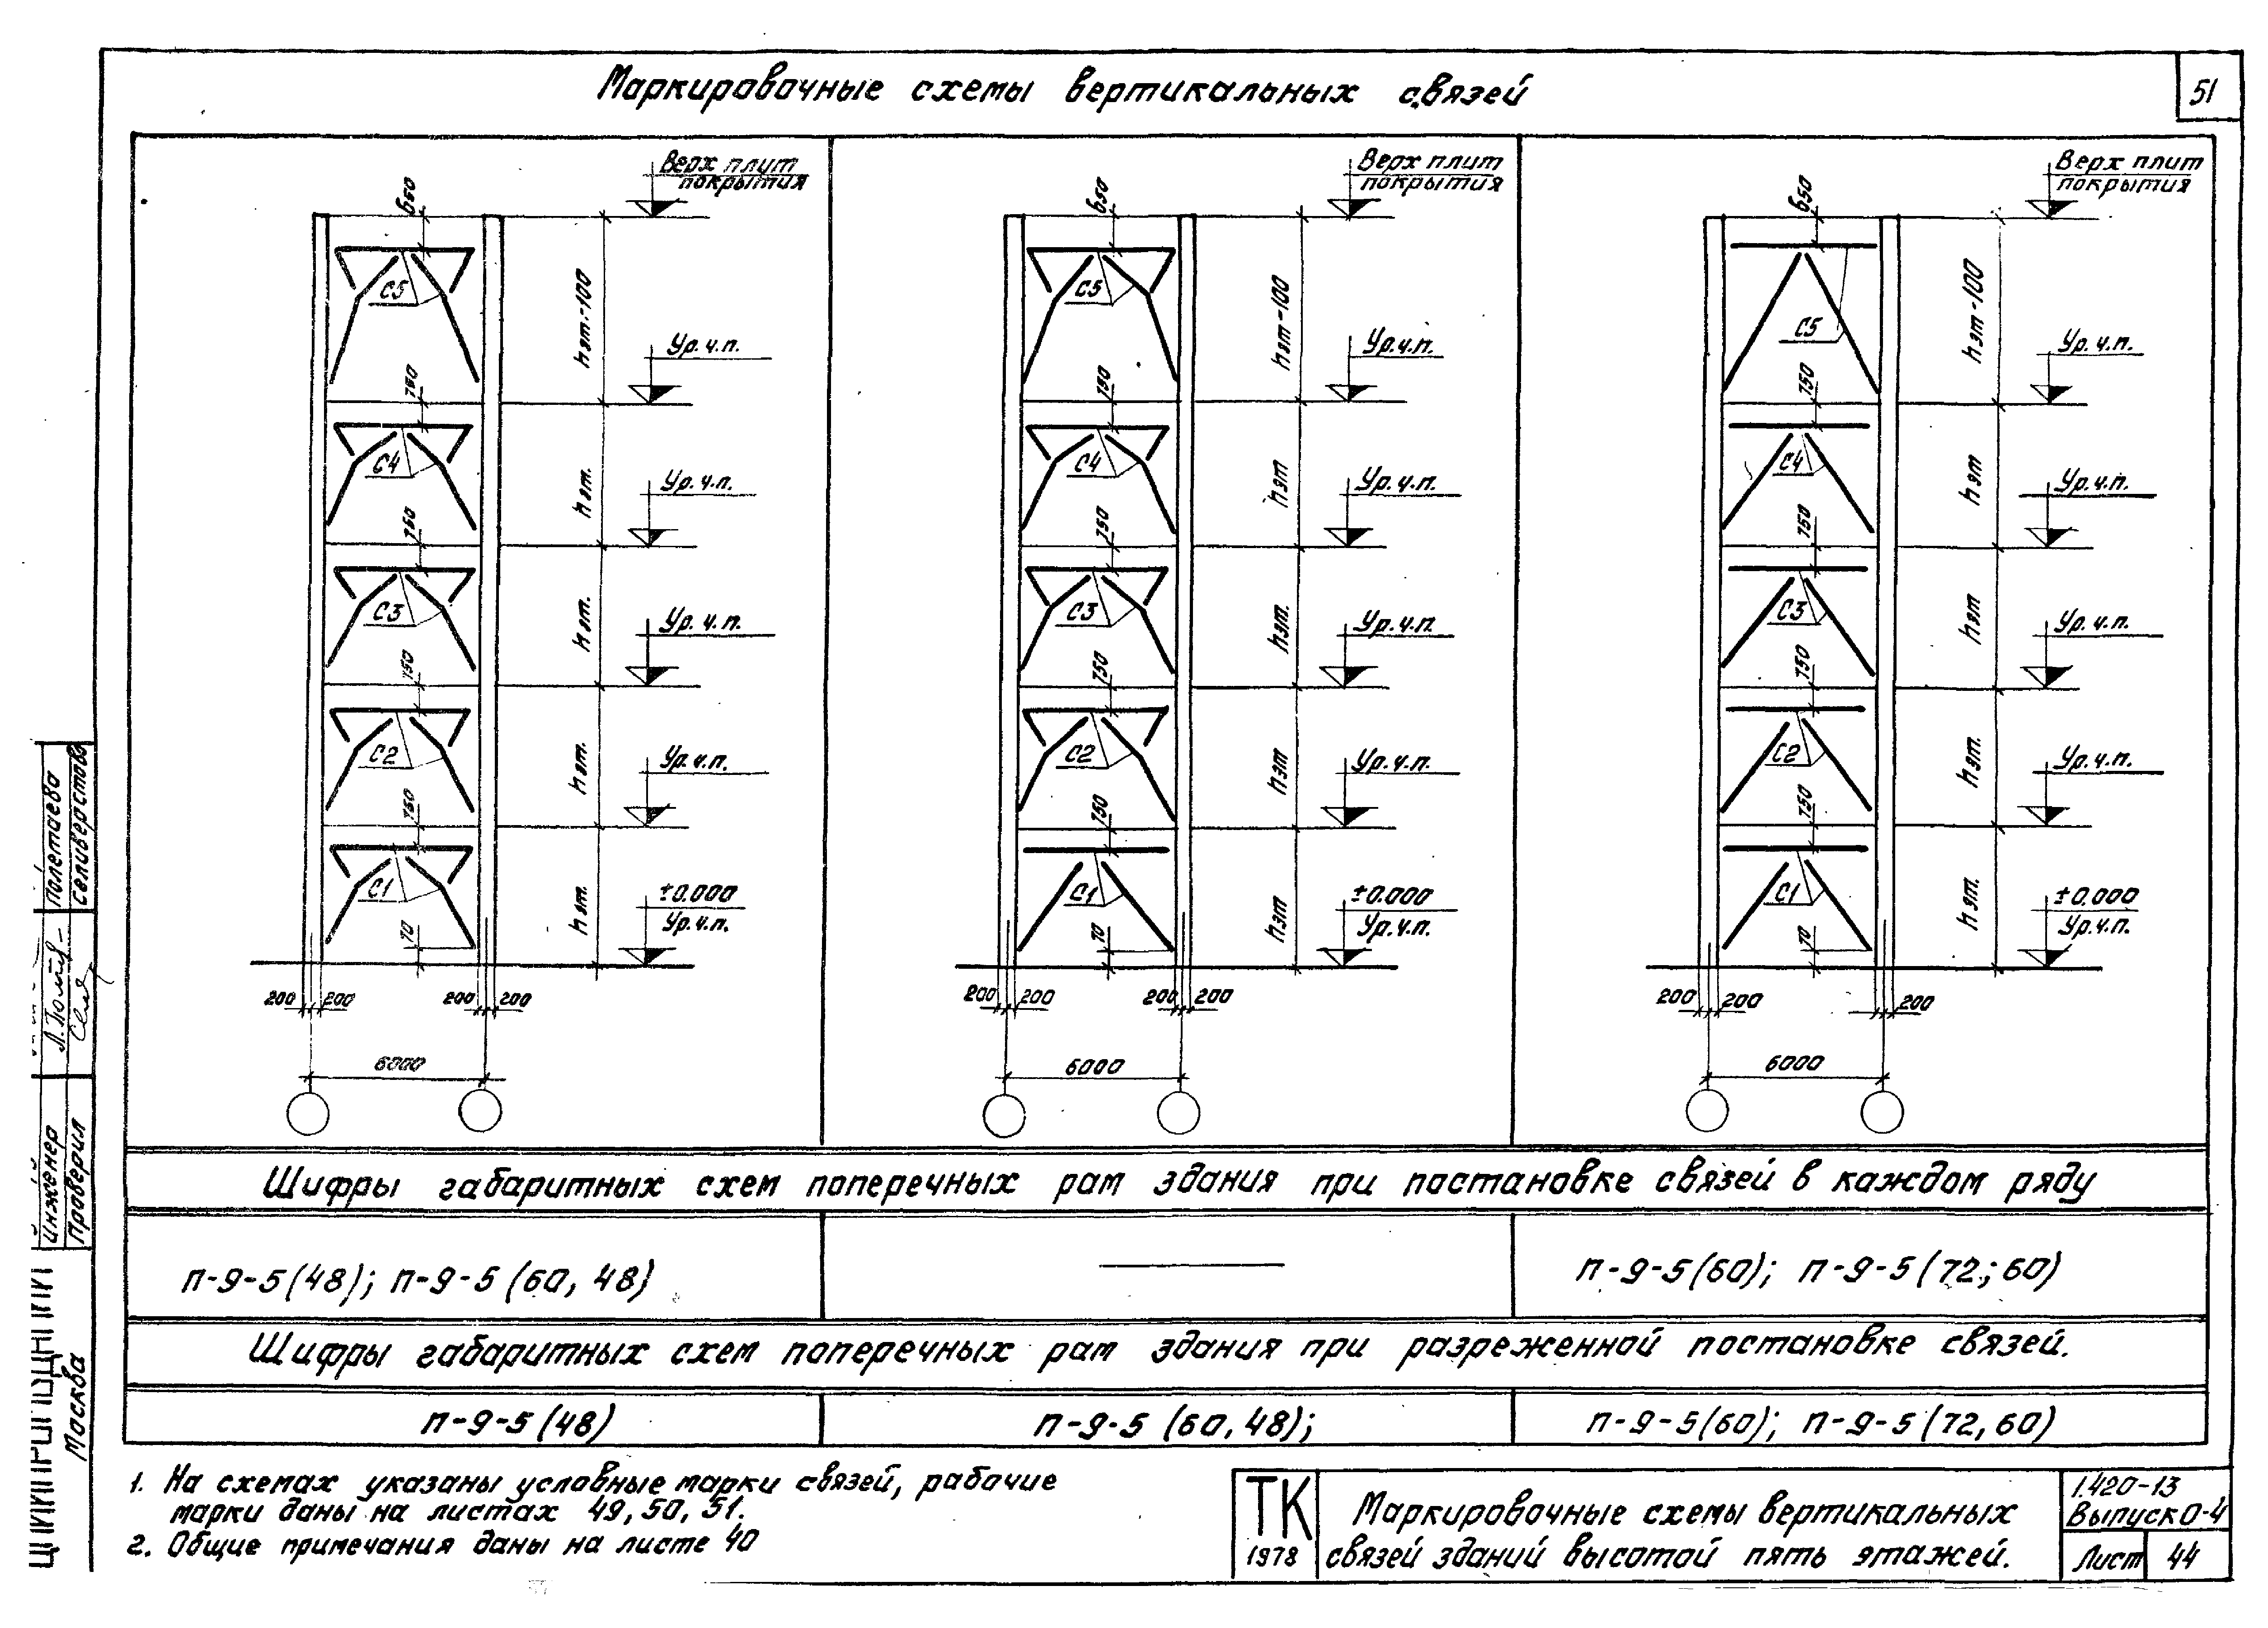 Маркировочные схемы вертикальных связей
51
Верх плит
покрытия
650
С5
hэт.-100
Ур.ч.п.
750
С4
hэт.
Ур.ч.п.
750
С3
hэт.
Ур.ч.п.
750
С2
hэт.
Ур.ч.п.
750
С1
hэт.
±0.000
Ур.ч.п.
70
200 200 200 200
6000
Верх плит
покрытия
650
С5
hэт-100
Ур.ч.п.
750
С4
hэт
Ур.ч.п.
750
С3
hэт.
Ур.ч.п.
750
С2
hэт
Ур.ч.п.
750
С1
hэт
±0.000
Ур.ч.п.
70
200 200 200 200
6000
Верх плит
покрытия
650
С5
hэт-100
Ур.ч.п.
750
С4
hэт
Ур.ч.п.
750
С3
hэт
Ур.ч.п.
750
С2
hэт.
Ур.ч.п.
750
С1
hэт.
±0.000
Ур.ч.п.
70
200 200 200
6000
Шифры габаритных схем поперечных рам здания при постановке связей в каждом ряду
п-9-5(48); п-9-5(60, 48)
п-9-5(60); п-9-5(72; 60)
Шифры габаритных схем поперечных рам здания при разреженной постановке связей.
п-9-5(48)
п-9-5 (60,48);
п-9-5(60); п-9-5(72,60)
1. На схемах указаны условные марки связей, рабочие
марки даны на листах 49, 50, 51.
2. Общие примечания даны на листе 40
ТК
1978
Маркировочные схемы вертикальных
связей зданий высотой пять этажей.
1.420-13
Выпуск 0-4
Лист 44
Инженер
Полетаева
Проверил
Селиверстова
Москва